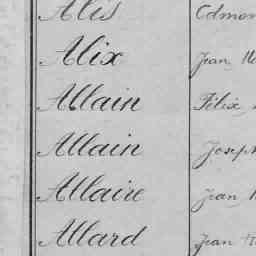 Alis Edmon
Alix Jean
Allain Félix
Allain Joseph
Allaire Jean
Allard Jean